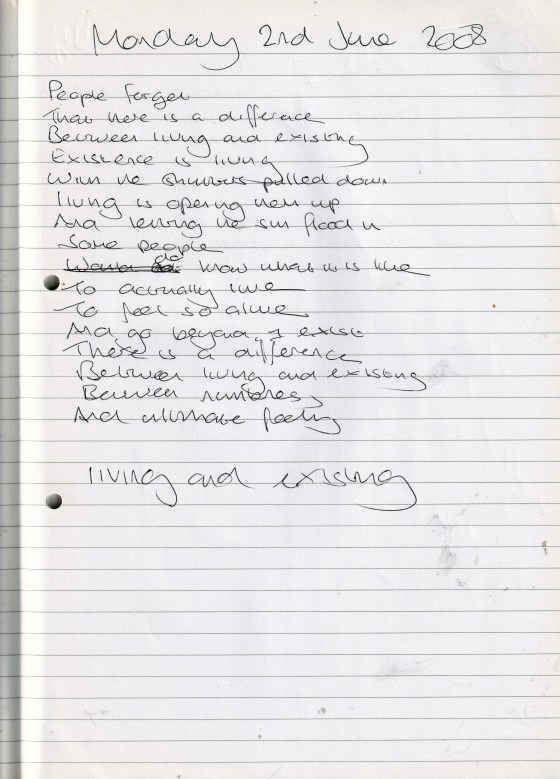 Monday 2nd June 2008
People forget
That there is a difference
Between living and existing
Existence is living
With the shutters pulled down
living is opening them up
And letting the sun flood in
Some people
do know what it is like
To actually live
To feel so alive
And go beyond, I exist
There is a difference
Between living and existing
Between numbness
And ultimate feeling
living and existing